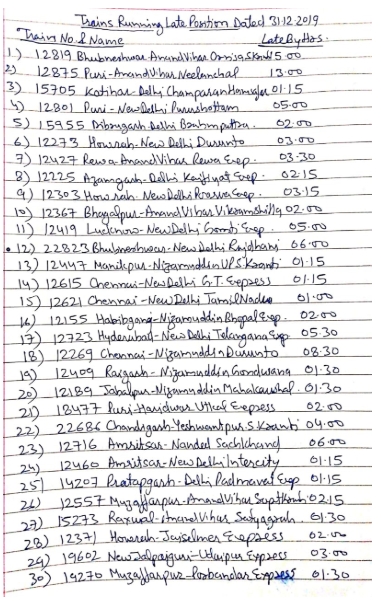 Trains Running Late Position Dated 31.12.2019
Train No. & Name Late By Hrs.
1) 12819 Bhubneshwar-Anand Vihar Orrisa Skranti 5.00
2) 12875 Puri-Anand Vihar Neelanchal 13.00
3) 15705 Katihar-Delhi Champaran Hamsafar 01.15
4) 12801 Puri-New Delhi Purushottam 05.00
5) 15955 Dibrugarh-Delhi Brahmputra. 02.00
6) 12273 Howrah-New Delhi Duronto 03.00
7) 12427 Rewa-Anand Vihar Rewa Exp. 03.30
8) 12225 Azamgarh-Delhi Kaifiyat Exp. 02.15
9) 12303 Howrah-New Delhi Poorva Exp. 03.15
10) 12367 Bhagalpur-Anand Vihar Vikramshilla 02.00
11) 12419 Lucknow-New Delhi Gomti Exp. 05.00
12) 22823 Bhubneshwar-New Delhi Rajdhani 06.00
13) 12447 Manikpur-Nizamuddin U.P.S Kranti 01.15
14) 12615 Chennai-New Delhi G.T. Express 01.15
15) 12621 Chennai-New Delhi Tamil Nadu 01.00
16) 12155 Habibganj-Nizamuddin Bhopal Exp. 02.00
17) 12723 Hyderabad-New Delhi Telangana Exp 05.30
18) 12269 Chennai-Nizamuddin Duronto 08.30
19) 12409 Raigarh-Nizamuddin Gondwana 01.30
20) 12189 Jabalpur-Nizamuddin Mahakaushal. 01.30
21) 18477 Puri-Haridwar Utkal Express 02.00
22) 22686 Chandigarh-Yeshwantpur S.Kranti 04.00
23) 12716 Amritsar-Nanded Sachkhand 06.00
24) 12460 Amritsar-New Delhi Intercity 01.15
25) 14207 Pratapgarh-Delhi Padmavat Exp 01.15
26) 12557 Muzaffarpur-Anand Vihar Saptkranti 02.15
27) 15273 Raxual-Anand Vihar Satyagrah. 01.30
28) 12371 Howrah-Jaiselmer Express 02.00
29) 19602 New Jalpaiguri-Udaipur Express 03.00
30) 19270 Muzaffarpur-Porbandar Express 01.30